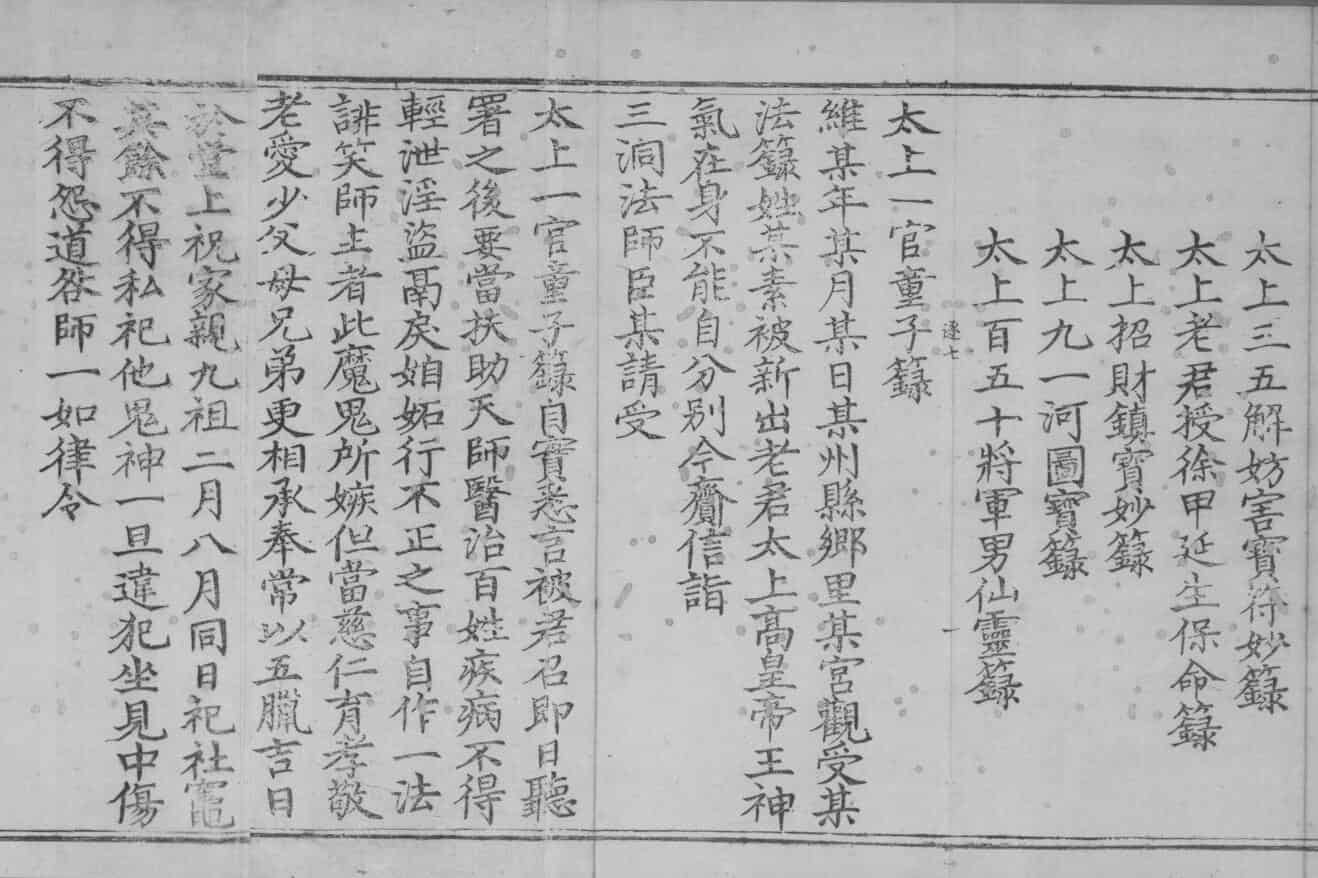 太上三五解妨害寶符妙籙
太上老君授徐甲延生保命籙
太上招財鎮寶妙籙
太上九一河圖寶籙
太上百五十將軍男仙靈籙
逐七
太上一官童子籙
維某年某月某日某州縣鄉里某宮觀受某
法籙姓某素被新出老君太上高皇帝王神
氣在身不能自分別今齎信詣
三洞法師臣某請受
太上一官童子籙自實悉言被君召即日聽
署之後要當扶助天師醫治百姓疾病不得
輕泄淫盜鬲戾姐妬行不正之事自作一法
誹笑師主者此魔鬼所嫉但當慈仁育孝敬
老愛少父母兄弟更相承奉常以五臘吉日
於堂上祝家親九祖二月八月同日祀社竈
其餘不得私祀他鬼神一旦違犯坐見中傷
不得怨道咎師一如律令